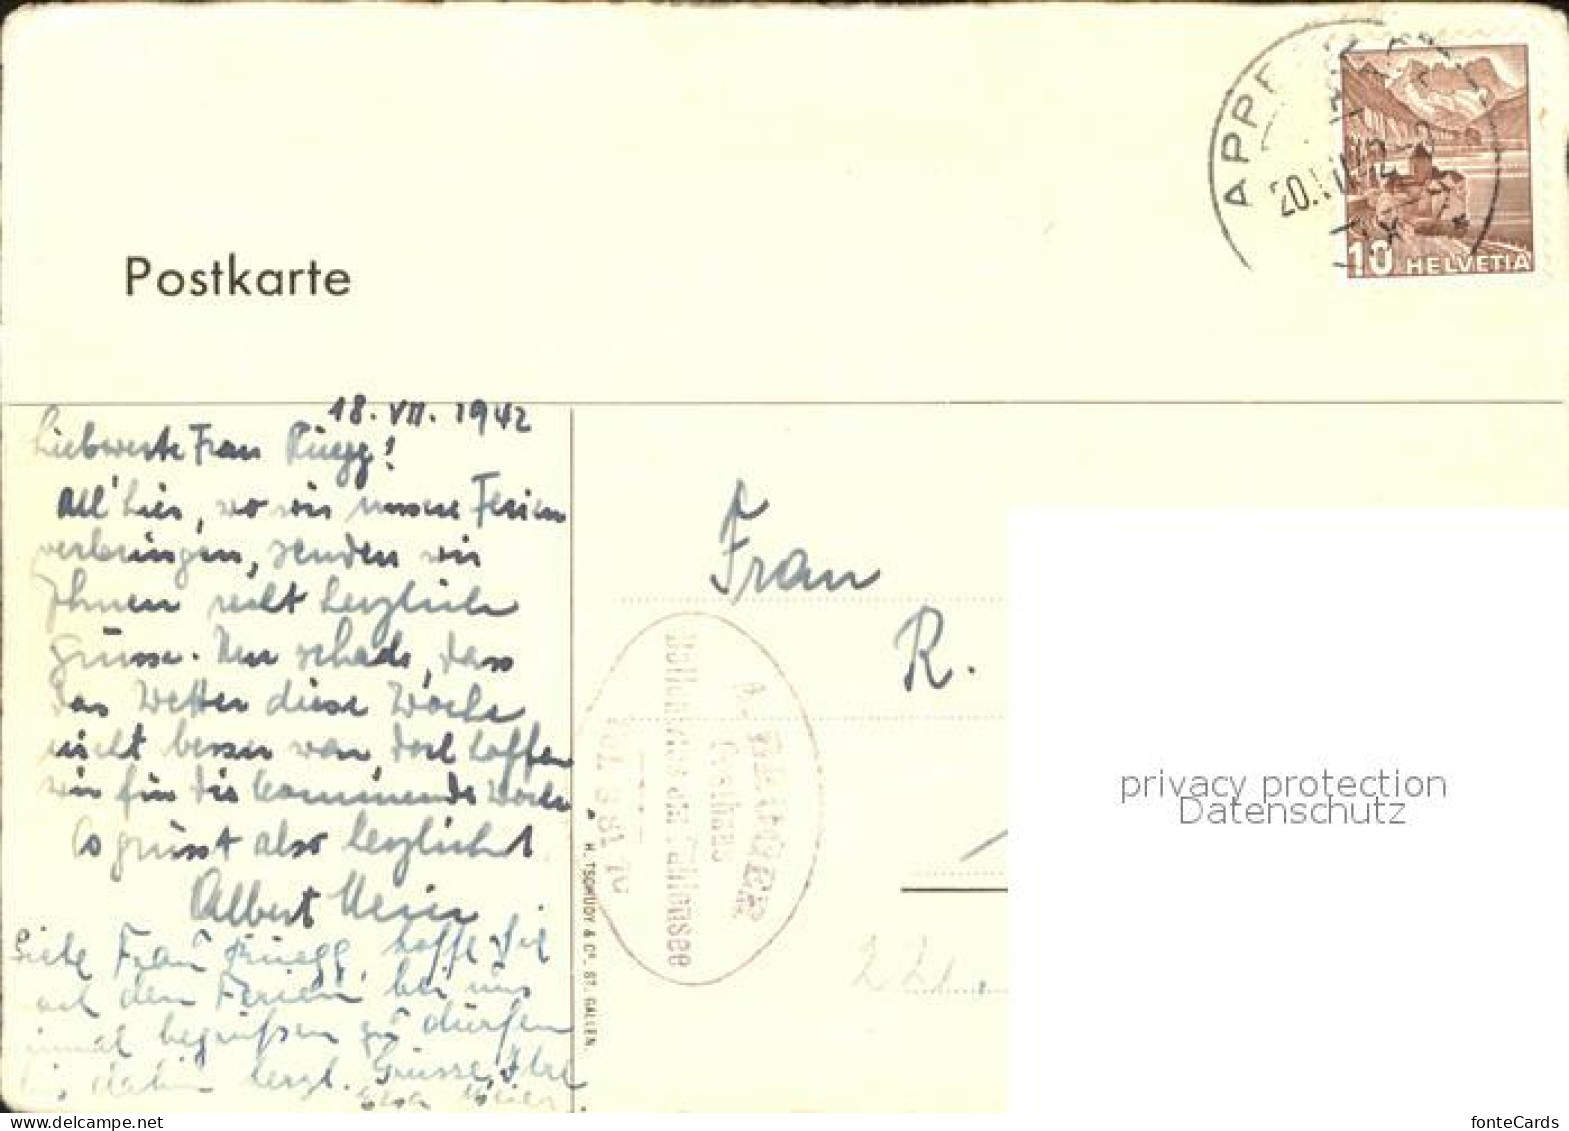 APPE
20.VII.42
10 HELVETIA
Postkarte
18. VII. 1942
Liebwerte Frau Rüegg!
All'hier, wo wir unsere Ferien
verbringen, senden wir
Ihnen recht herzliche
Grüsse. Nur schade, dass
das Wetter diese Woche
nicht besser war, doch hoffen
wir für die kommende Woche
Es grüsst also herzlichst
Albert Meier
Liebe Frau Rüegg, hoffe Sie
nach den Ferien bei uns
einmal begrüßen zu dürfen
bis dahin herzl. Grüsse, Ihre
Elsa Meier
H. TSCHUDY & Co., ST. GALLEN.
Gasthaus
Tel. 8 81 78
Frau
R.
privacy protection
Datenschutz
fonteCards